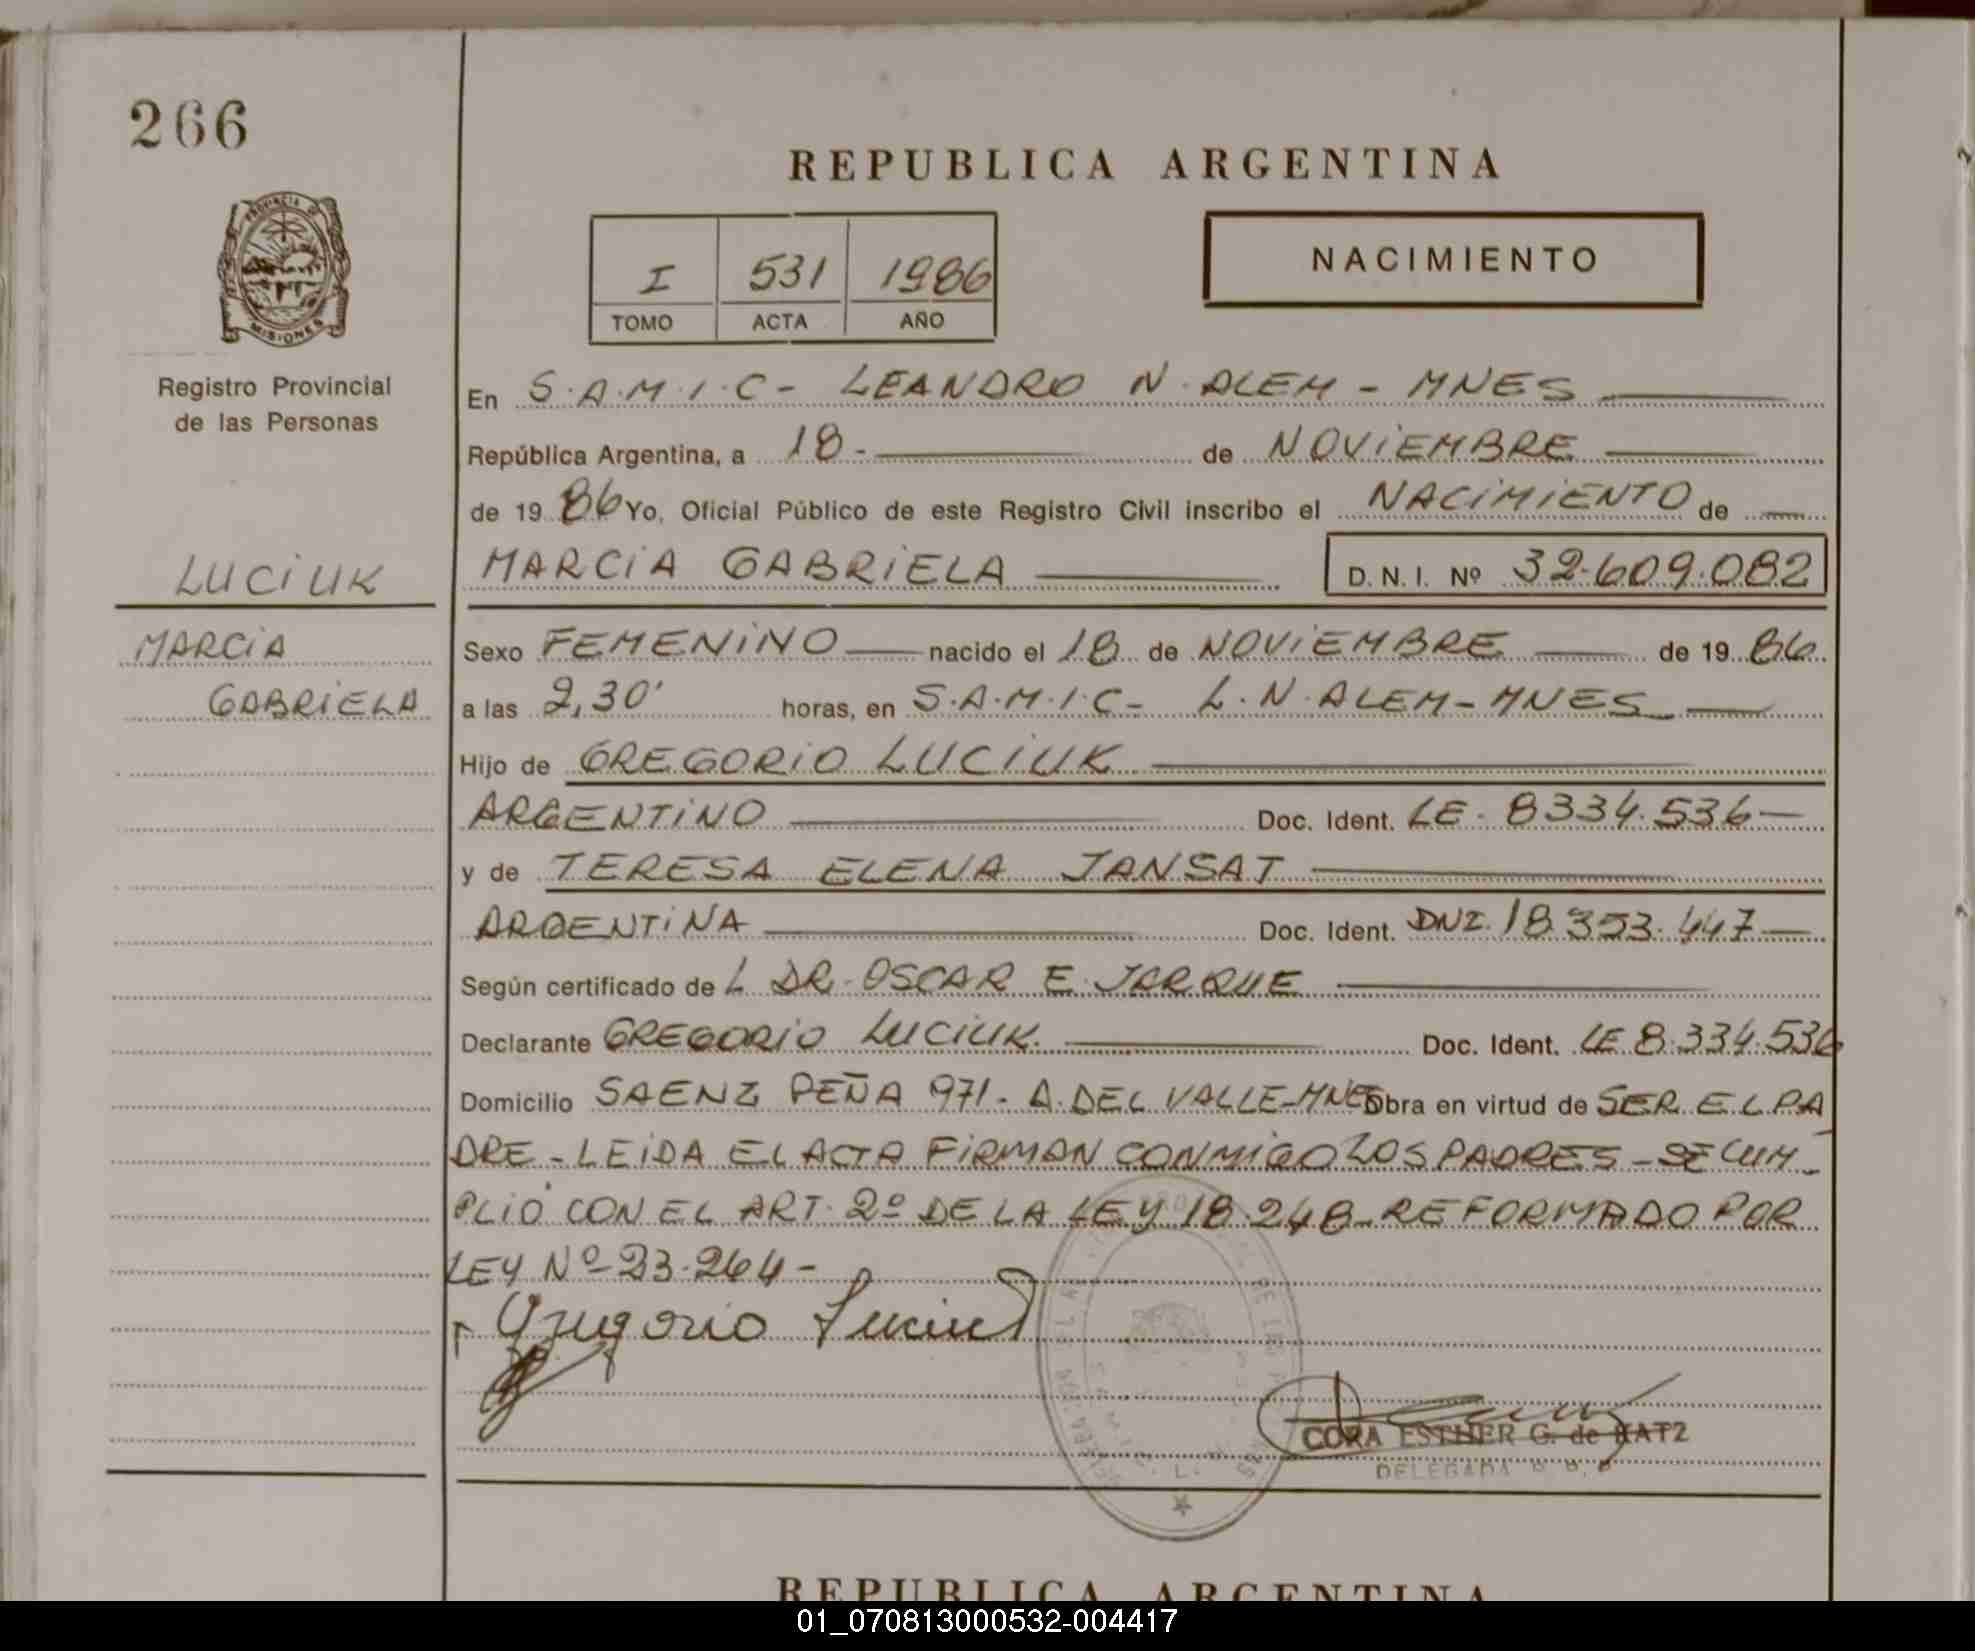 266
REPUBLICA ARGENTINA
PROVINCIA DE
MISIONES
Registro Provincial
de las Personas
I 531 1986
TOMO ACTA AÑO
NACIMIENTO
En S.A.M.I.C - LEANDRO N. ALEM - MNES
República Argentina, a 18- de NOVIEMBRE
de 19 86 Yo, Oficial Público de este Registro Civil inscribo el NACIMIENTO de
LUCIUK
MARCIA GABRIELA D. N. I. Nº 32.609.082
MARCIA
GABRIELA
Sexo FEMENINO nacido el 18 de NOVIEMBRE de 19 86
a las 2,30' horas, en S.A.M.I.C- L.N.ALEM-MNES
Hijo de GREGORIO LUCIUK
ARGENTINO Doc. Ident. LE. 8334.536
y de TERESA ELENA JANSAT
ARGENTINA Doc. Ident. DNI. 18.353.447
Según certificado de L DR. OSCAR E. JARQUE
Declarante GREGORIO LUCIUK. Doc. Ident. LE 8.334.536
Domicilio SAENZ PEÑA 971- A. DEL VALLE-MNES Obra en virtud de SER EL PA
DRE - LEIDA EL ACTA FIRMAN CONMIGO LOS PADRES - SE CUM-
PLIÓ CON EL ART. 2º DE LA LEY 18.248 REFORMADO POR
LEY Nº 23.264-
Gregorio Luciuk
CORA ESTHER G. de KATZ
DELEGADA
REPUBLICA ARGENTINA
01_070813000532-004417